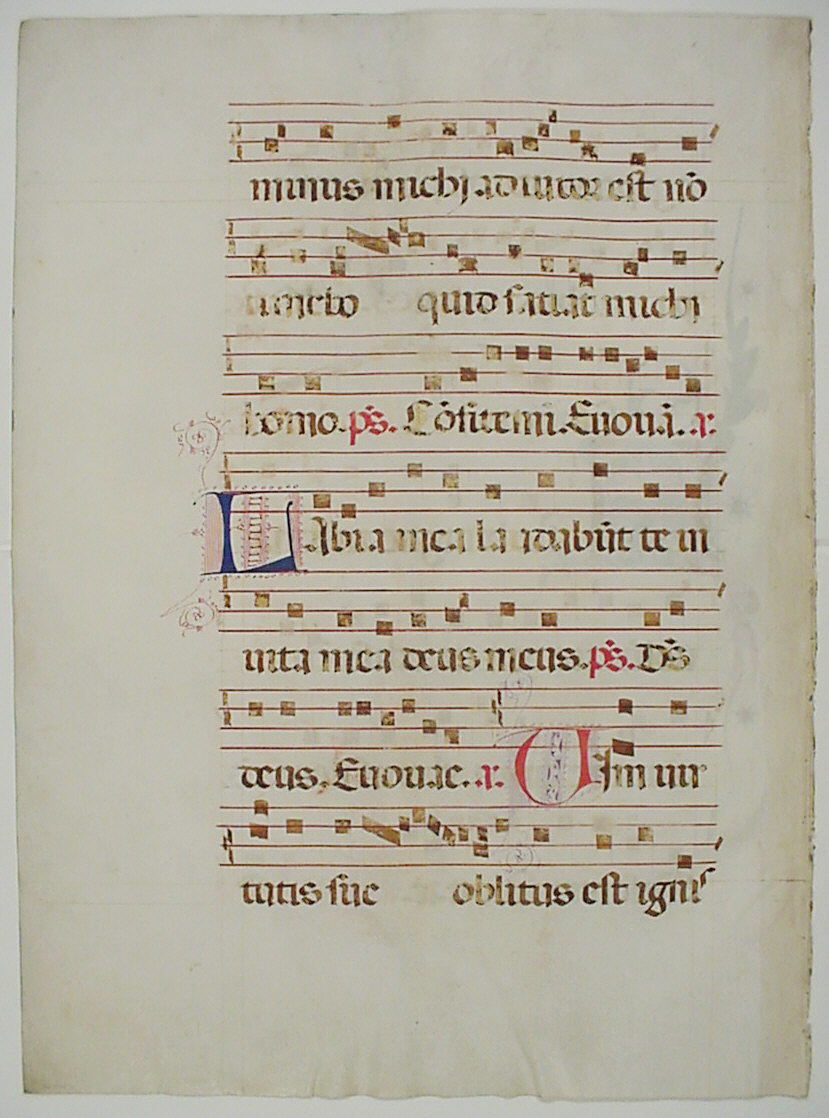 minus michi adiutor est nō
timebo quid faciat michi
homo. ps̄. Cōfitemi. Euoua. a.
Labia mea laudabūt te in
uita mea deus meus. ps̄. Ds̄
deus. Euouae. a. Uim uir
tutis sue oblitus est ignis